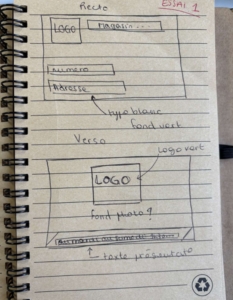 Recto
ESSAI 1
LOGO
Magasin ...
Numéro
Adresse
typo blanc
fond vert
Verso
Logo vert
LOGO
fond photo ?
texte présentato